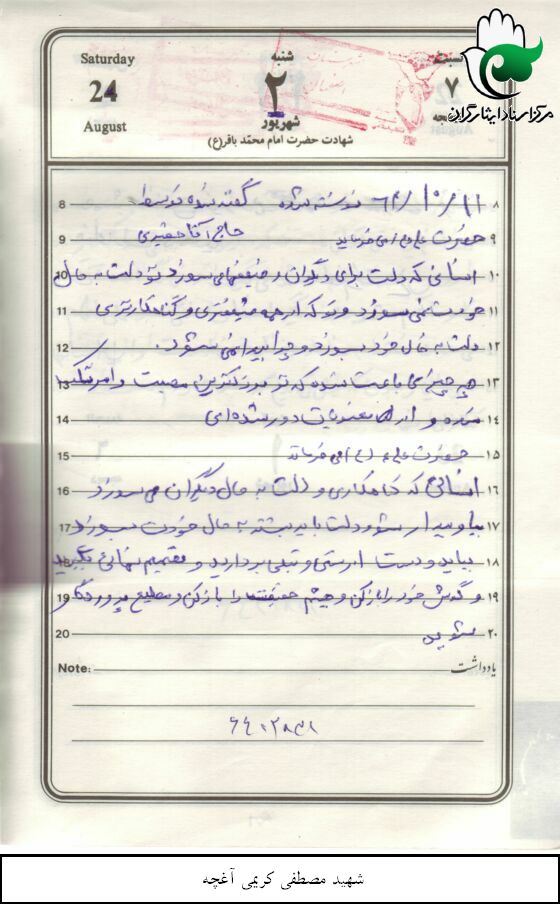 Saturday
24
August
شنبه
۲
شهریور
شهادت حضرت امام محمّد باقر(ع)
۷
مرکز اسناد ایثارگران
8 ۶۴/۱۰/۱۱ نوشته شده گفته شده توسط ۸
9 حضرت علی (ع) می فرماید حاج آقا ۹
10 انسانی که دلت برای دیگران و ضعیفهای سوزد تو دلت به حال ۱۰
11 خودت نمی سوزد و تو که از همه ضعیفتری و گناهکارتری ۱۱
12 دلت به حال خود بسوزد و چرا بیدار نمی شوی ۱۲
13 چه چیزی باعث شده که تو بزرگترین معصیت را مرتکب ۱۳
14 شده و از راه معنویات دور شده ای ۱۴
15 حضرت علی (ع) می فرماید ۱۵
16 انسانی که گناهکاری و دلت به حال دیگران می سوزد ۱۶
17 بیا و بیدار شو و دلت باید بیشتر به حال خودت بسوزد ۱۷
18 بیاید و دست از سستی و تنبلی بردارید و تصمیم نهائی بگیرید ۱۸
19 و گوش خود را باز کن و چشم حقیقت را باز کن و مطیع پروردگار ۱۹
20 شوید ۲۰
Note: یادداشت
شهید مصطفی کریمی آغچه